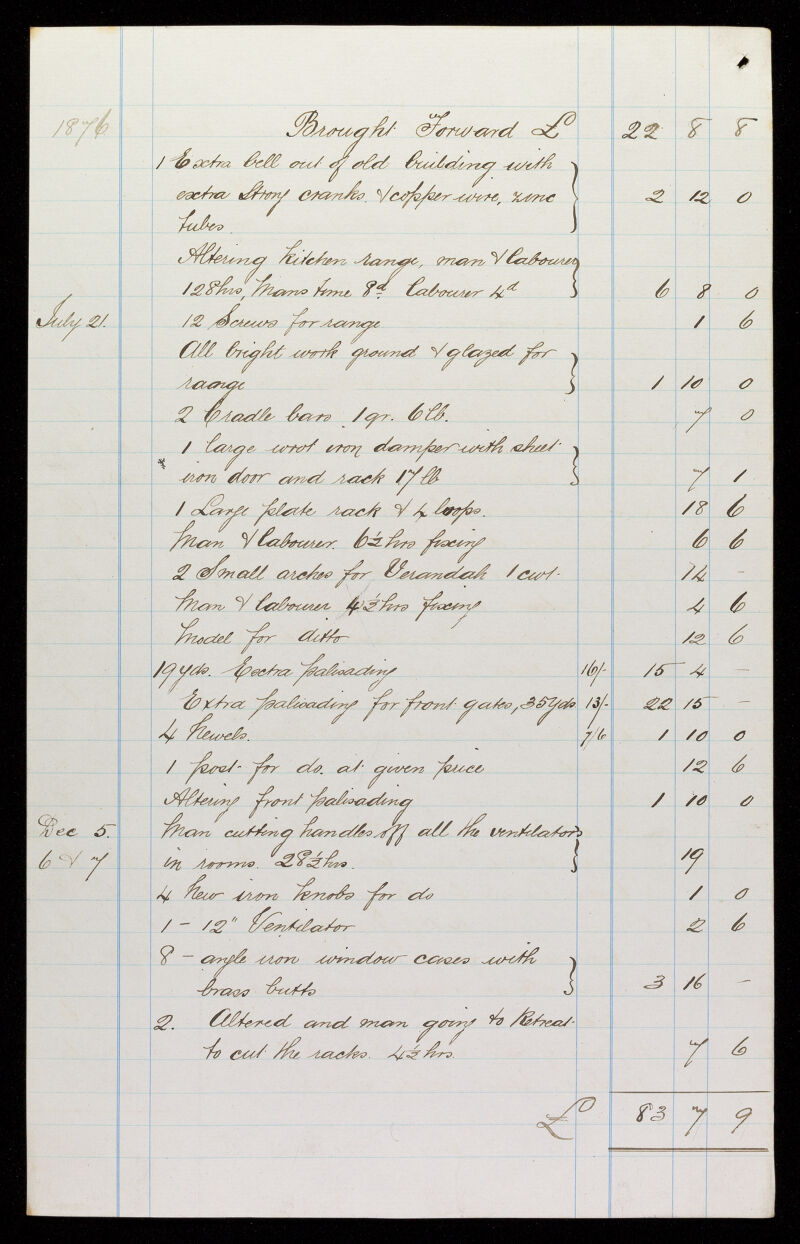 1876 Brought Forward £ 22 8 8
1 Extra bell out of old building with
extra Strong cranks. & copper wire, zinc 2 12 0
tubes.
Altering kitchen range, man & labourer
128hrs, Mans time 8d. labourer 4d 6 8 0
July 21. 12 Screws for range 1 6
All bright work ground & glazed for
raange 1 10 0
2 Cradle bars 1 qr. 6 lb. 7 0
1 large wrot iron damper with sheet
iron door and rack 17 lb 7 1
1 Large plate rack & 4 loops. 18 6
Man & labourer. 6½ hrs fixing 6 6
2 Small arches for Verandah 1 cwt. 14 -
Man & labourer 4½ hrs fixing 4 6
Model for ditto 12 6
19 yds. Eextra palisading 16/- 15 4 -
Extra palisading for front gates, 35 yds 13/- 22 15 -
4 Newels. 7/6 1 10 0
1 post for do. at given price 12 6
Altering front palisading 1 10 0
Dec 5. Man cutting handles off all the ventilators
6 & 7 in rooms. 28½ hrs. 19
4 New iron knobs for do 1 0
1 - 12" Ventilator 2 6
8 - angle iron window cases with
brass butts 3 16 -
2. Altered and man going to Retreat
to cut the racks. 4½ hrs. 7 6
£ 83 7 9